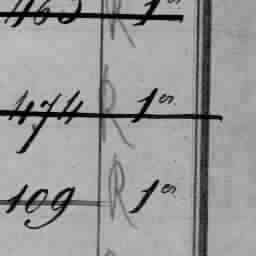 463 R 1er
474 R 1er
109 R 1er